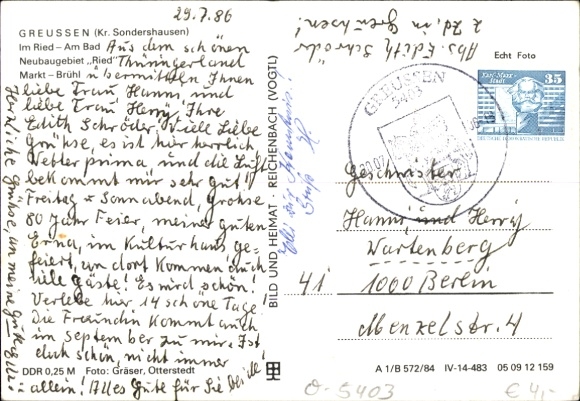 29.7.86
GREUSSEN (Kr. Sondershausen)
Im Ried – Am Bad
Neubaugebiet „Ried“
Markt – Brühl
Aus dem schönen
Thüringerland
übermitteln Ihnen
liebe Frau Hanni und
liebe Frau Herry, Ihre
Edith Schröder, viele liebe
Grüsse, es ist hier herrlich
Wetter prima und die Luft
bekommt mir sehr gut!
Freitag + Sonnabend, Grohse
80 Jahr Feier, meiner guten
Erna, im Kulturhaus ge-
feiert, un dort kommen auch
viele Gäste! Es wird schön!
Verlebe hier 14 schöne Tage!
Die Freundin kommt auch
im September zu mir. Ist
doch schön, nicht immer
allein! Alles Gute für Sie beide!
Herzliche Grüsse, un meine gute
DDR 0,25 M Foto: Gräser, Otterstedt
BILD UND HEIMAT · REICHENBACH (VOGTL)
Gruß H
Abs. Edith Schröder
z Zd, in Greußen!
Echt Foto
GREUSSEN
5403
Karl-Marx-Stadt
35
DEUTSCHE DEMOKRATISCHE REPUBLIK
Geschwister
Hanni und Herry
Wartenberg
41 1000 Berlin
Menzelstr. 4
A 1/B 572/84 IV-14-483 05 09 12 159
O-5403
€ 4,-